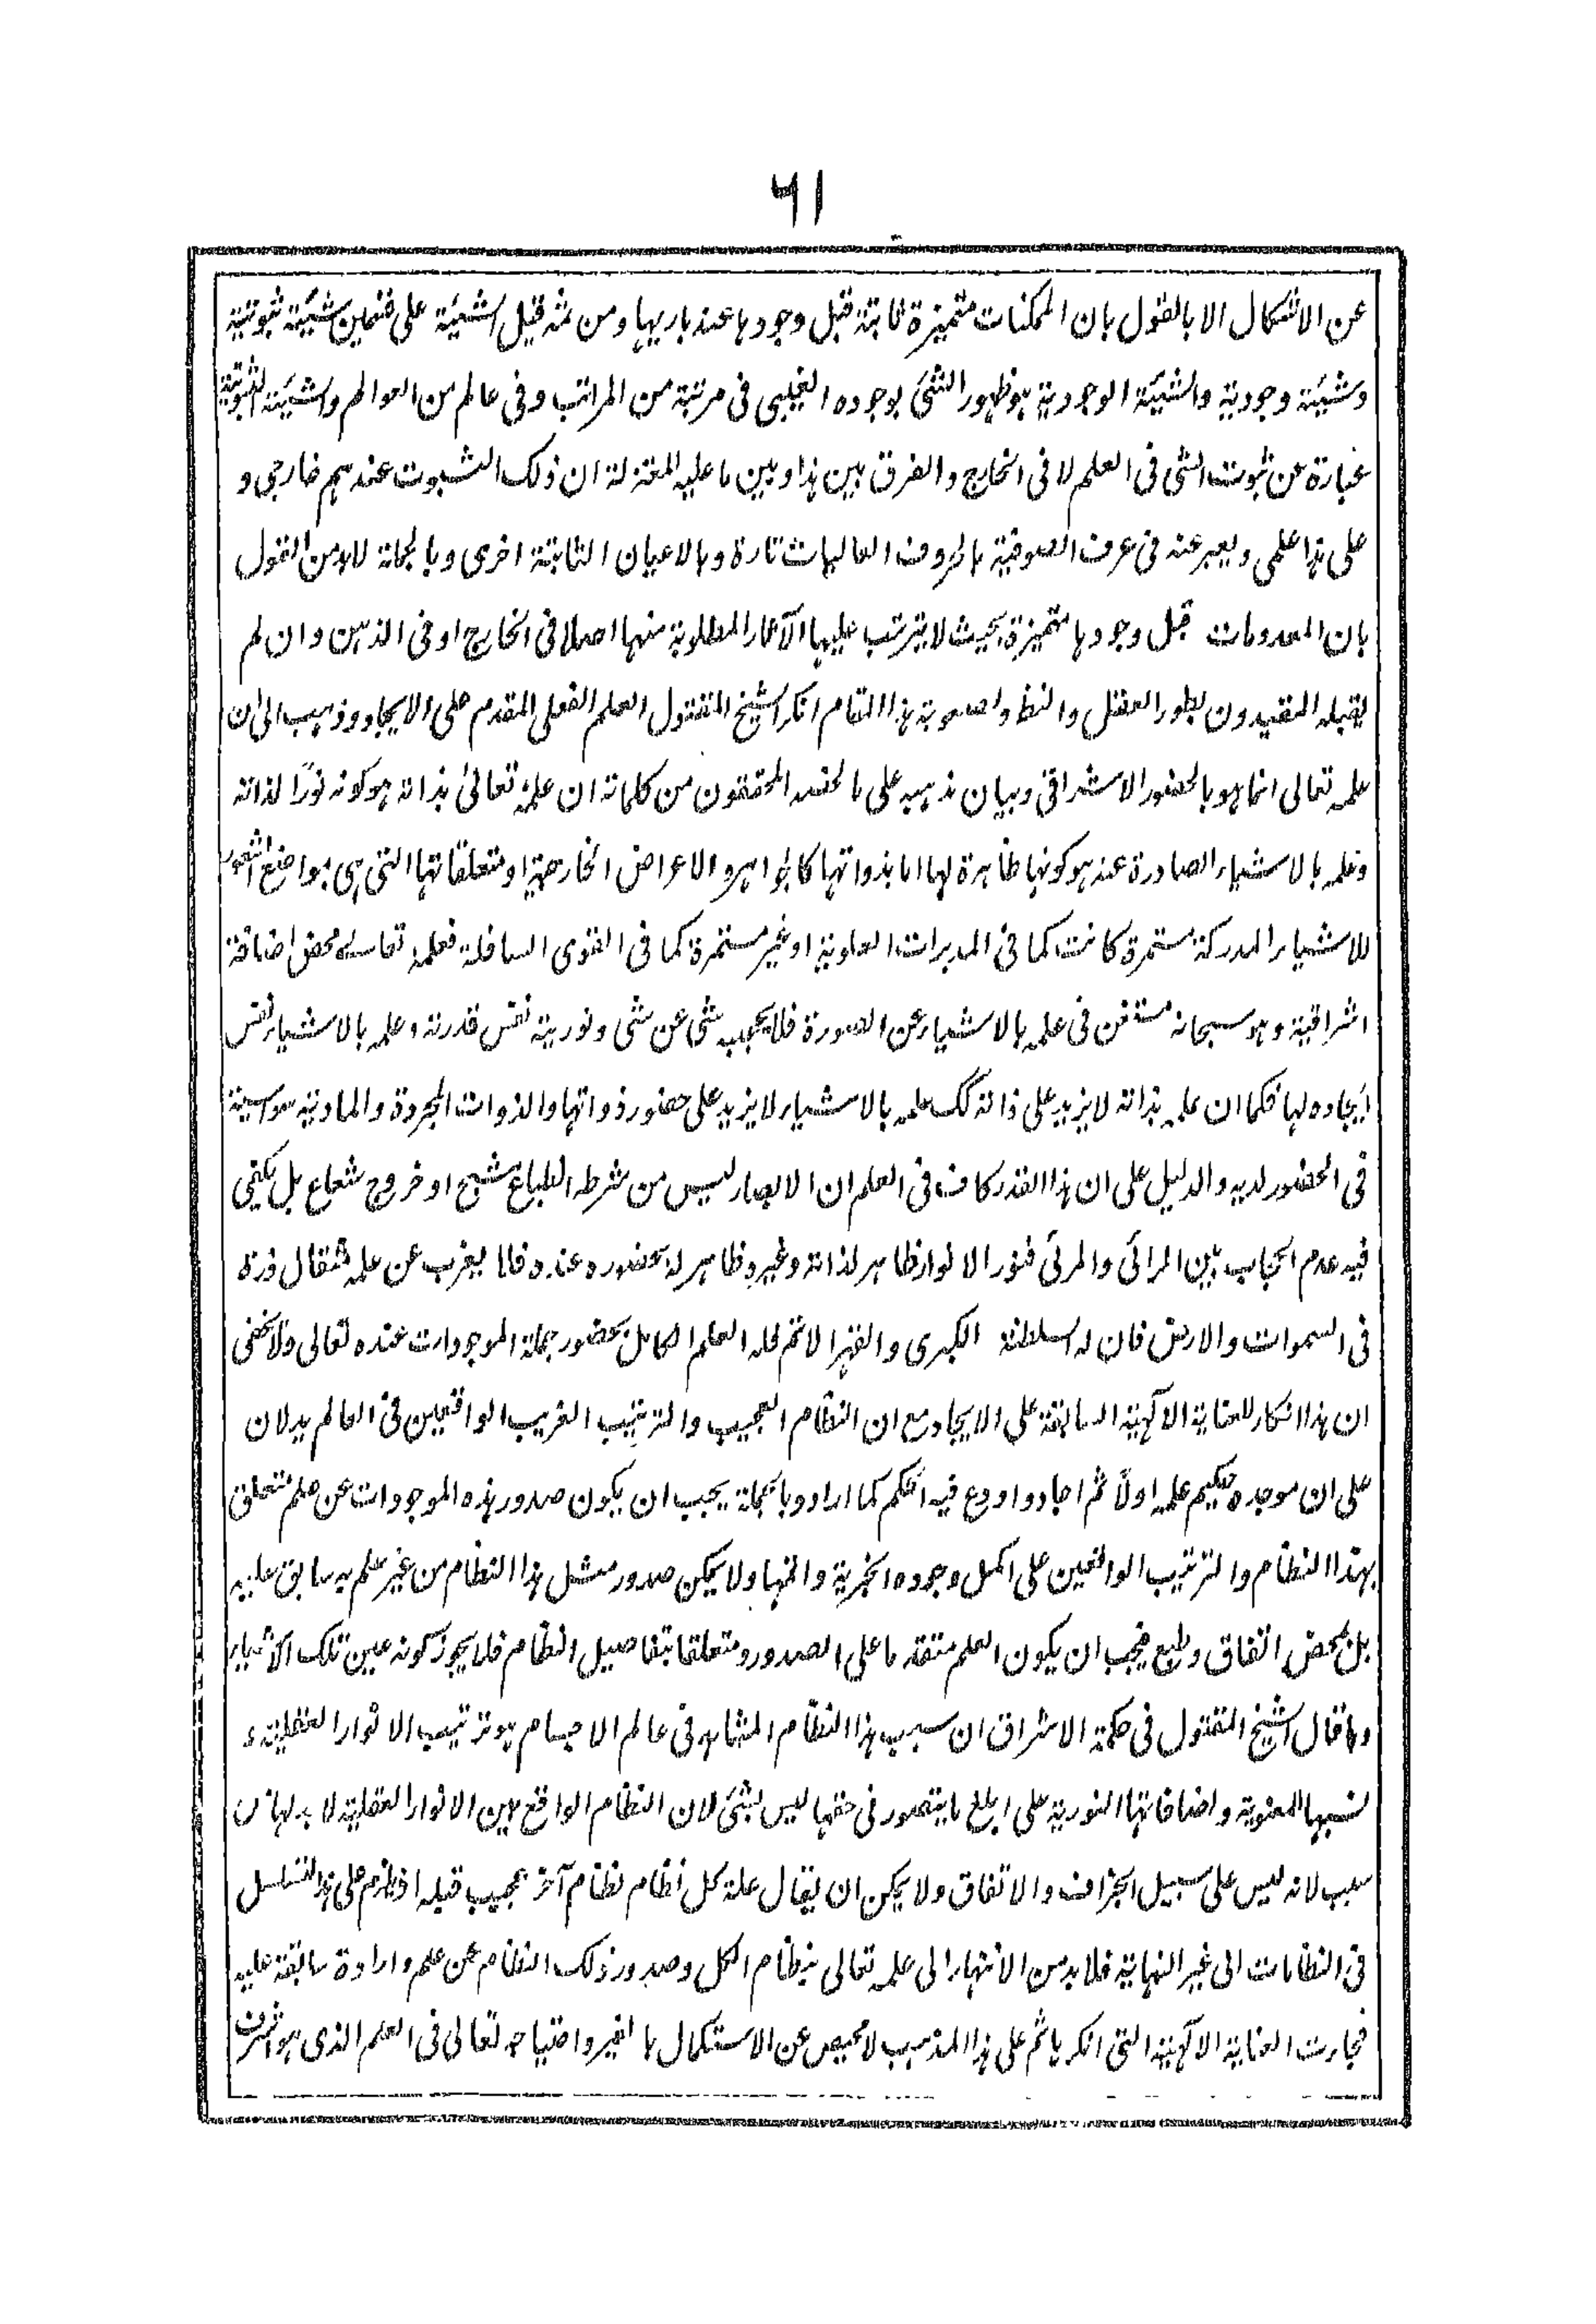 ٦١
عن الاشكال الا بالقول بان الممكنات متميزة ثابتة قبل وجودها عند باريها ومن ثمه قيل الشيئة على قسمين شيئة ثبوتية
وشيئة وجودية والشيئة الوجودية هو ظهور الشئ بوجوده العينى فى مرتبة من المراتب وفى عالم من العوالم والشيئة الثبوتية
عبارة عن ثبوت الشئ فى العلم لا فى الخارج والفرق بين هذا وبين ما عليه المعتزلة ان ذلك الثبوت عندهم خارجى و
على هذا علمى ويعبر عنه فى عرف الصوفية بالحروف العاليات تارة وبالاعيان الثابتة اخرى وبالجملة لابد من القول
بان المعدومات قبل وجودها متميزة بحيث لا يترتب عليها الآثار المطلوبة منها اصلا فى الخارج او فى الذهن وان لم
يقبله المقيدون بطور العقل والنظر ولصعوبة هذا المقام انكر الشيخ المقتول العلم الفعلى المقدم على الايجاد وذهب الى ان
علمه تعالى انما هو بالحضور الاشراقى وبيان مذهبه على ما لخصه المحققون من كلماته ان علمه تعالى بذاته هو كونه نورًا لذاته
وعلمه بالاشياء الصادرة عنه هو كونها ظاهرة لها اما بذواتها كالجواهر والاعراض الخارجية او متعلقاتها التى هى مواضع الشعور
للاشياء المدركة مستمرة كانت كما فى المدبرات العلوية او غير مستمرة كما فى القوى السافلة فعلمه تعالى محض اضافة
اشراقية وهو سبحانه مستغن فى علمه بالاشياء عن الصورة فلا يحجبه شئ عن شئ ونوريته نفس قدرته وعلمه بالاشياء نفس
ايجاده لها فكما ان علمه بذاته لا يزيد على ذاته كك علمه بالاشياء لا يزيد على حضور ذواتها والذوات المجردة والمادية سواسية
فى الحضور لديه والدليل على ان هذا القدر كاف فى العلم ان الابصار ليس من شرطه انطباع شبح او خروج شعاع بل يكفى
فيه عدم الحجاب بين الرائى والمرئى فنور الانوار ظاهر لذاته وغيره ظاهر له بحضوره عنده فلا يعزب عن علمه مثقال ذرة
فى السموات والارض فان له السلطنة الكبرى والقهر الاتم فله العلم الكامل بحضور جملة الموجودات عنده تعالى ولا يخفى
ان هذا انكار للعناية الآلهية السابقة على الايجاد مع ان النظام العجيب والترتيب الغريب الواقعين فى العالم يدلان
على ان موجده حكيم علمه اولًا ثم اجاد واودع فيه الحكم كما اراد وبالجملة يجب ان يكون صدور هذه الموجودات عن علم متعلق
بهذا النظام والترتيب الواقعين على اكمل وجوده الخيرية ولا يمكن صدور مثل هذا النظام من غير علم به سابق عليه
بل بمحض اتفاق وطبع فيجب ان يكون العلم متقدما على الصدور ومتعلقا بتفاصيل النظام فلا يجوز كونه عين تلك الاشياء
وما قال الشيخ المقتول فى حكمة الاشراق ان سبب هذا النظام المشاهد فى عالم الاجسام هو ترتيب الانوار العقلية و
نسبها المعنوية واضافاتها النورية على ابلغ ما يتصور فى حقها ليس بشئ لان النظام الواقع بين الانوار العقلية لابد لها من
سبب لانه ليس على سبيل الجزاف والاتفاق ولا يمكن ان يقال علة كل نظام نظام آخر عجيب قبله اذ يلزم على هذا التسلسل
فى النظامات الى غير النهاية فلابد من الانتهاء الى علمه تعالى بنظام الكل وصدور ذلك النظام عن علم وارادة سابقة عليه
فجاءت العناية الالهية التى انكرها ثم على هذا المذهب لا محيص عن الاستكمال بالغير واحتياجه تعالى فى العلم الذى هو اشرف